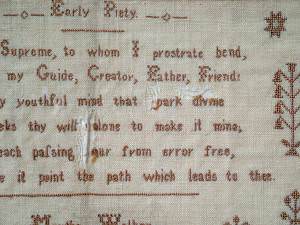 Early Piety.
Supreme, to whom I prostrate bend,
my Guide, Creator, Father, Friend:
youthful mind that park divine
thy will alone to make it mine,
each pafsing our from error free,
it point the path which leads to thee.